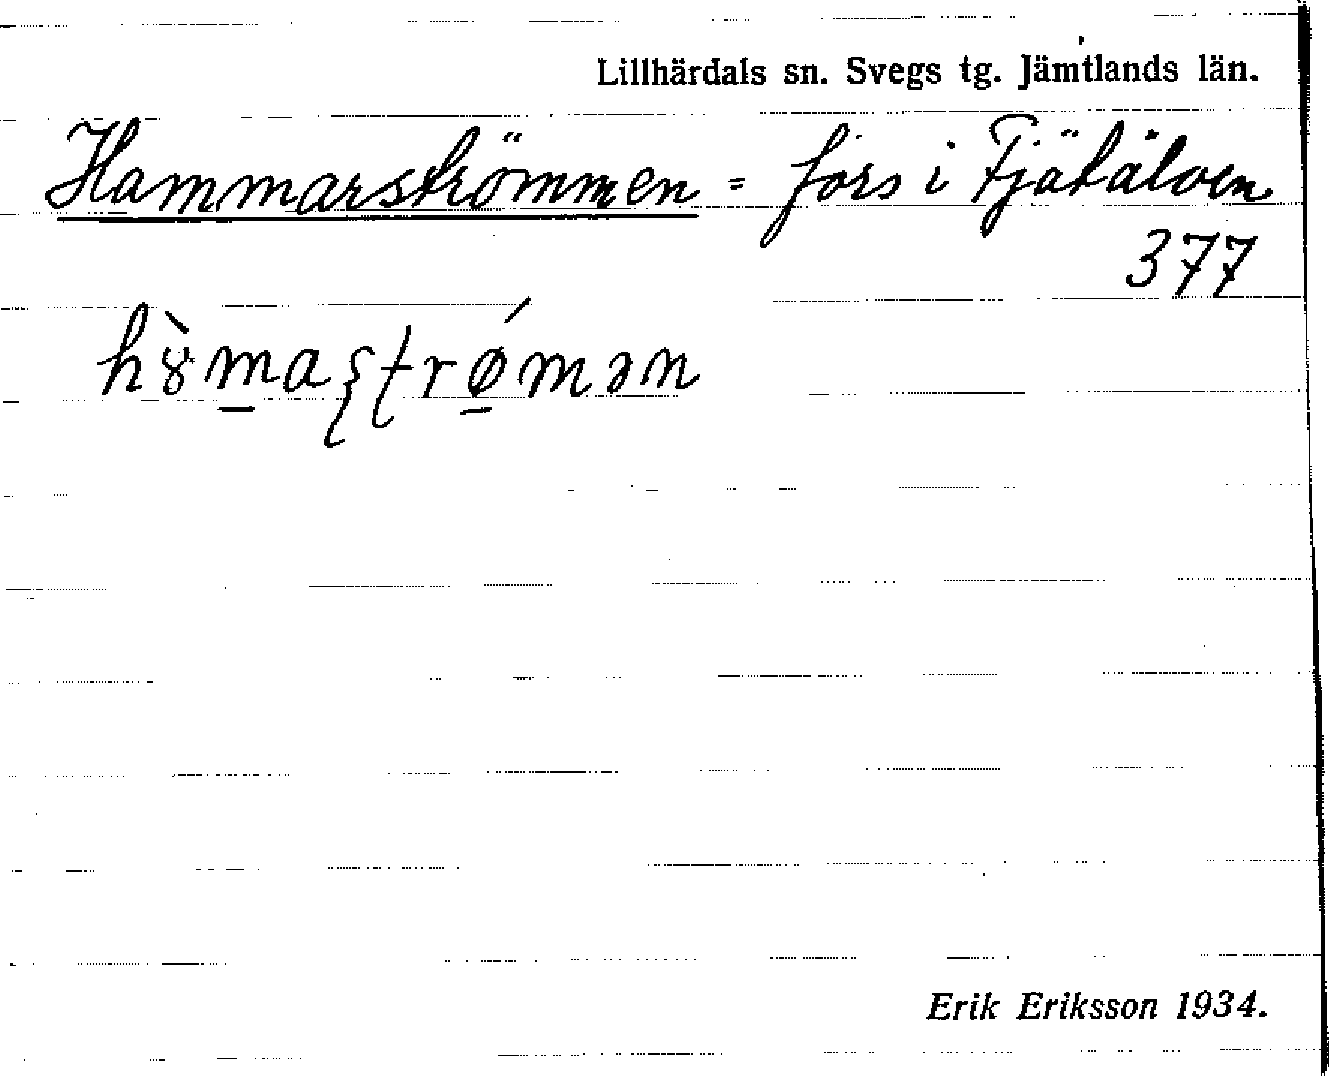 Lillhärdals sn. Svegs tg. Jämtlands län.
Hammarströmmen = fors i Fjätälven
377
Erik Eriksson 1934.